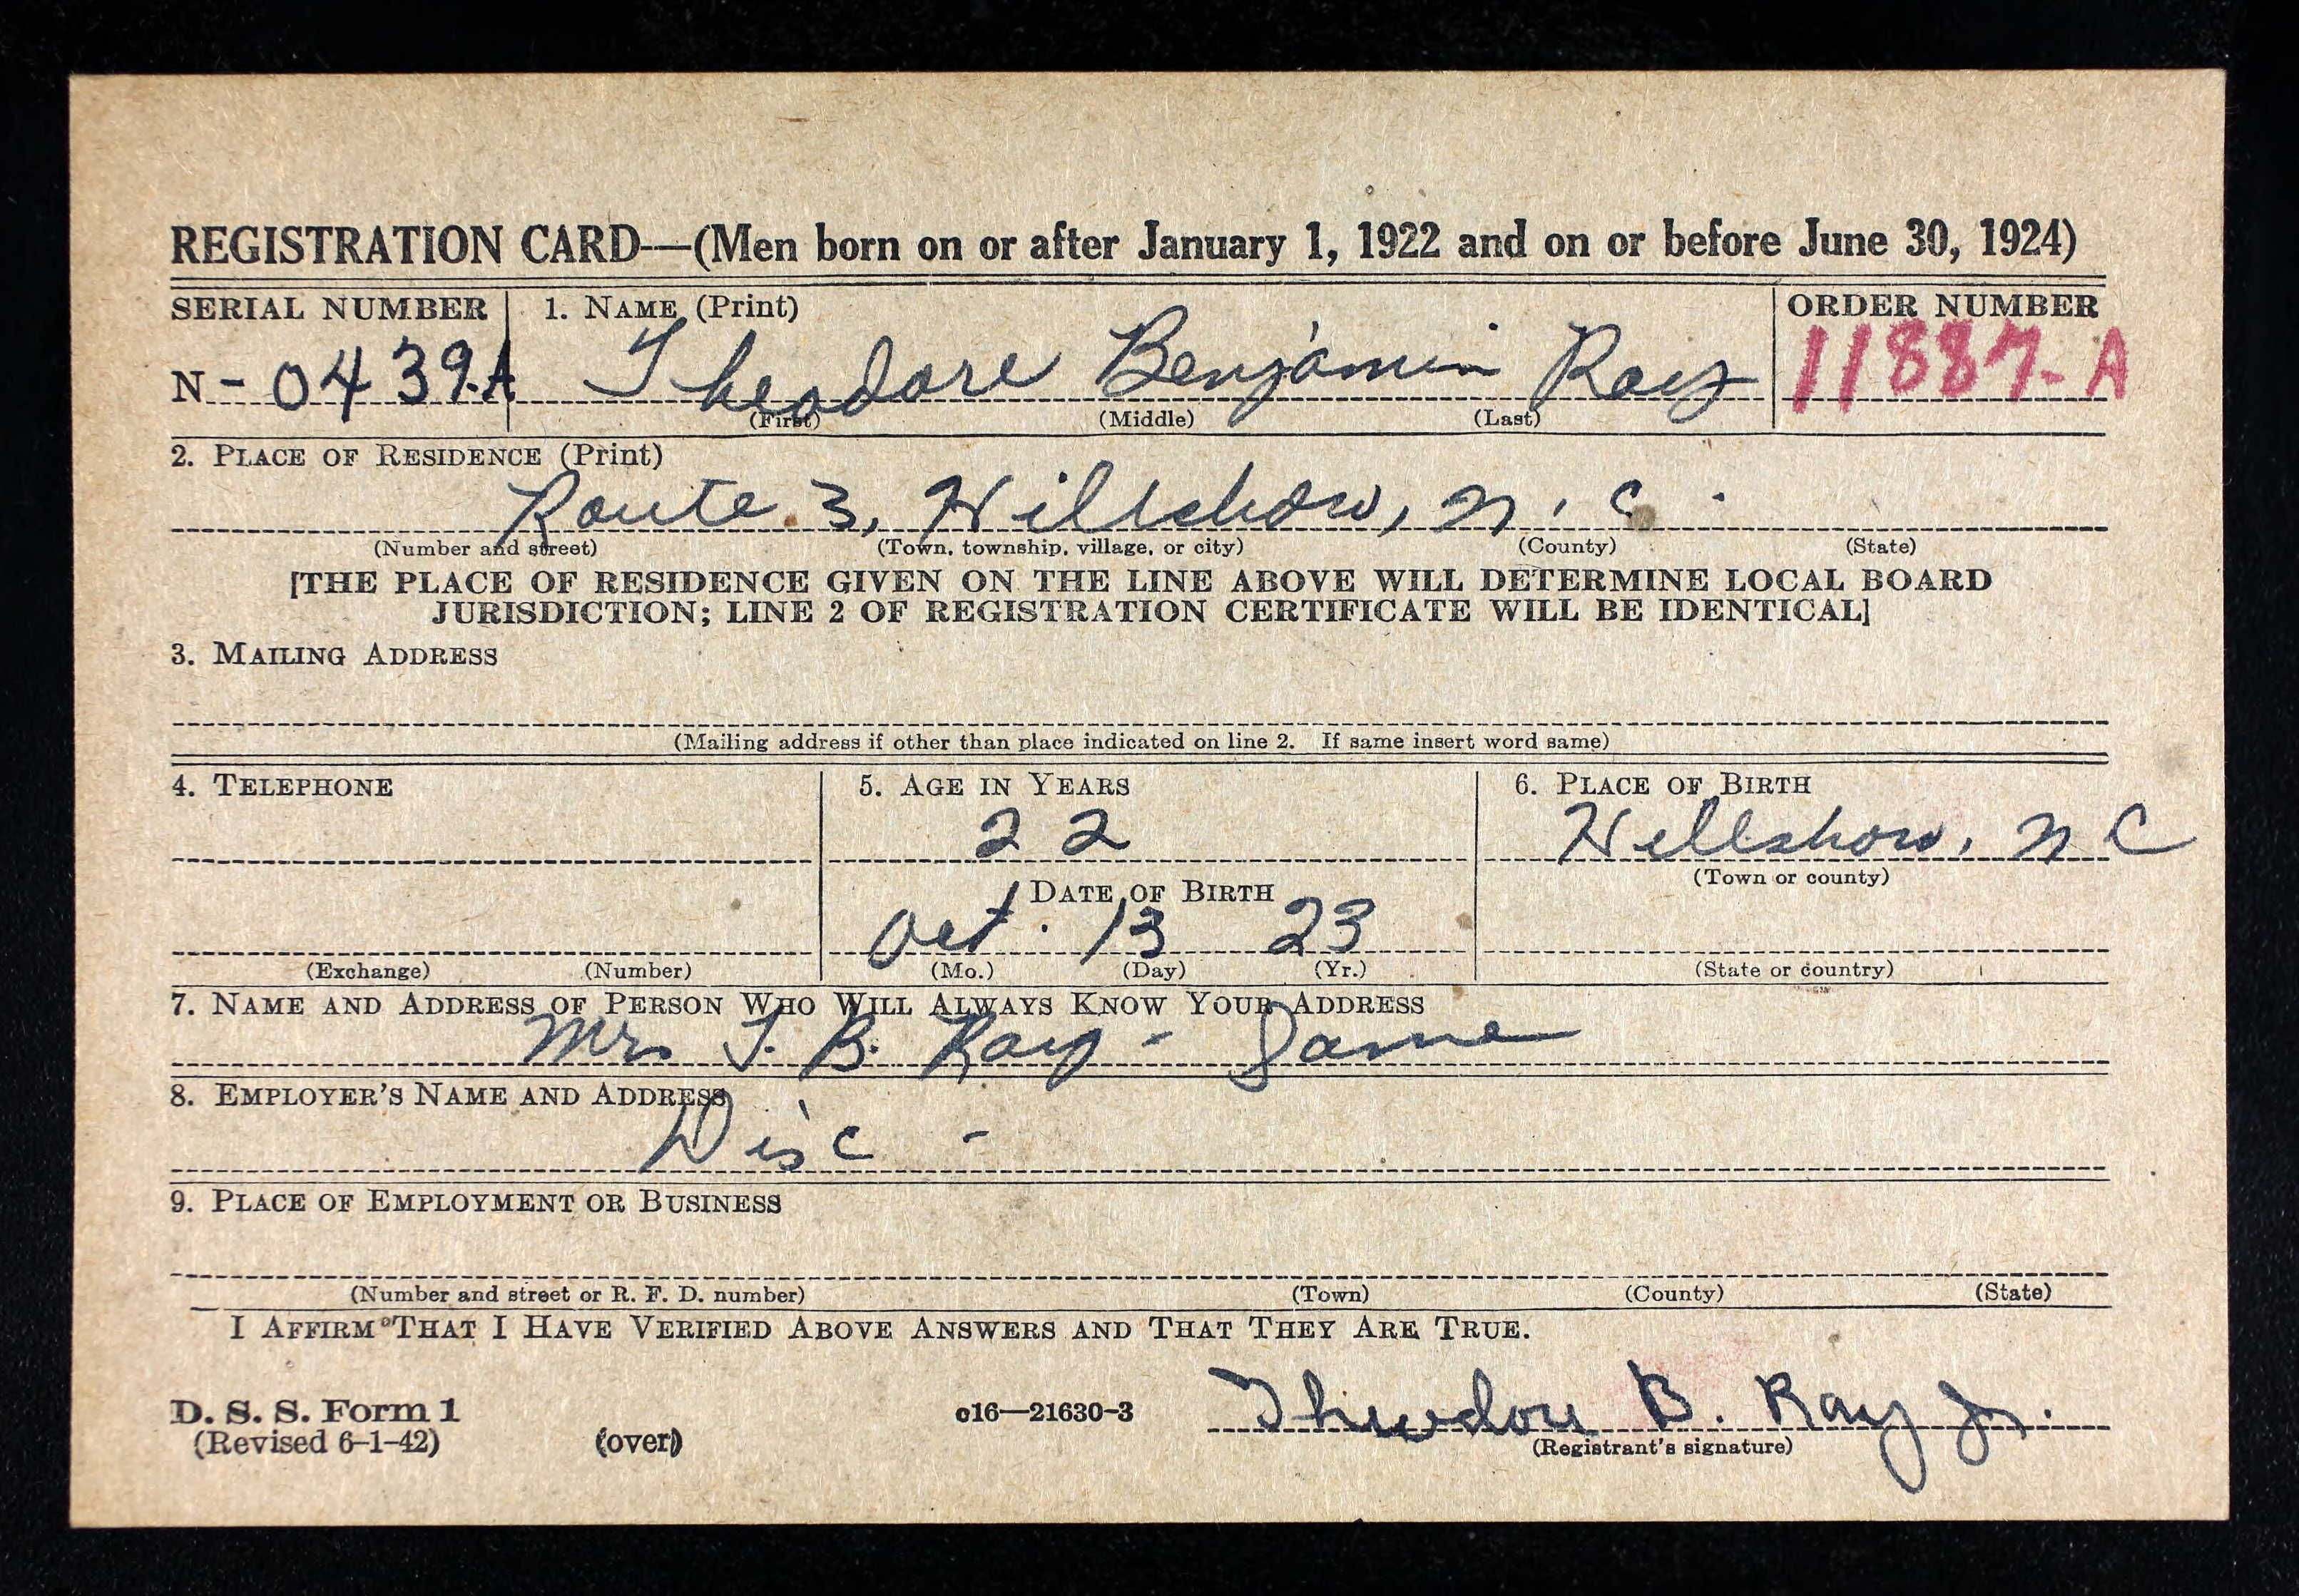 REGISTRATION CARD—(Men born on or after January 1, 1922 and on or before June 30, 1924)
SERIAL NUMBER 1. NAME (Print) ORDER NUMBER
N- 0439-A Theodore Benjamin Ray 11887-A
(First) (Middle) (Last)
2. PLACE OF RESIDENCE (Print)
Route 3, Hillsboro, N. C.
(Number and street) (Town, township, village, or city) (County) (State)
[THE PLACE OF RESIDENCE GIVEN ON THE LINE ABOVE WILL DETERMINE LOCAL BOARD
JURISDICTION; LINE 2 OF REGISTRATION CERTIFICATE WILL BE IDENTICAL]
3. MAILING ADDRESS
(Mailing address if other than place indicated on line 2. If same insert word same)
4. TELEPHONE 5. AGE IN YEARS 6. PLACE OF BIRTH
22 Hillsboro, N C
(Town or county)
DATE OF BIRTH
Oct. 13 23
(Exchange) (Number) (Mo.) (Day) (Yr.) (State or country)
7. NAME AND ADDRESS OF PERSON WHO WILL ALWAYS KNOW YOUR ADDRESS
Mrs T. B. Ray - Same
8. EMPLOYER'S NAME AND ADDRESS
Disc -
9. PLACE OF EMPLOYMENT OR BUSINESS
(Number and street or R. F. D. number) (Town) (County) (State)
I AFFIRM THAT I HAVE VERIFIED ABOVE ANSWERS AND THAT THEY ARE TRUE.
D. S. S. Form 1
(Revised 6-1-42) (over) c16—21630-3 Theodore B. Ray Jr.
(Registrant's signature)